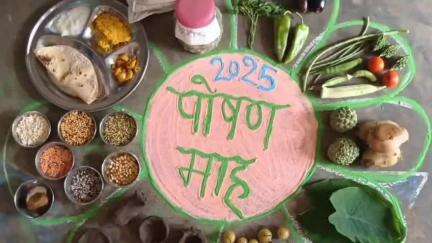 2025
पोषण
माह